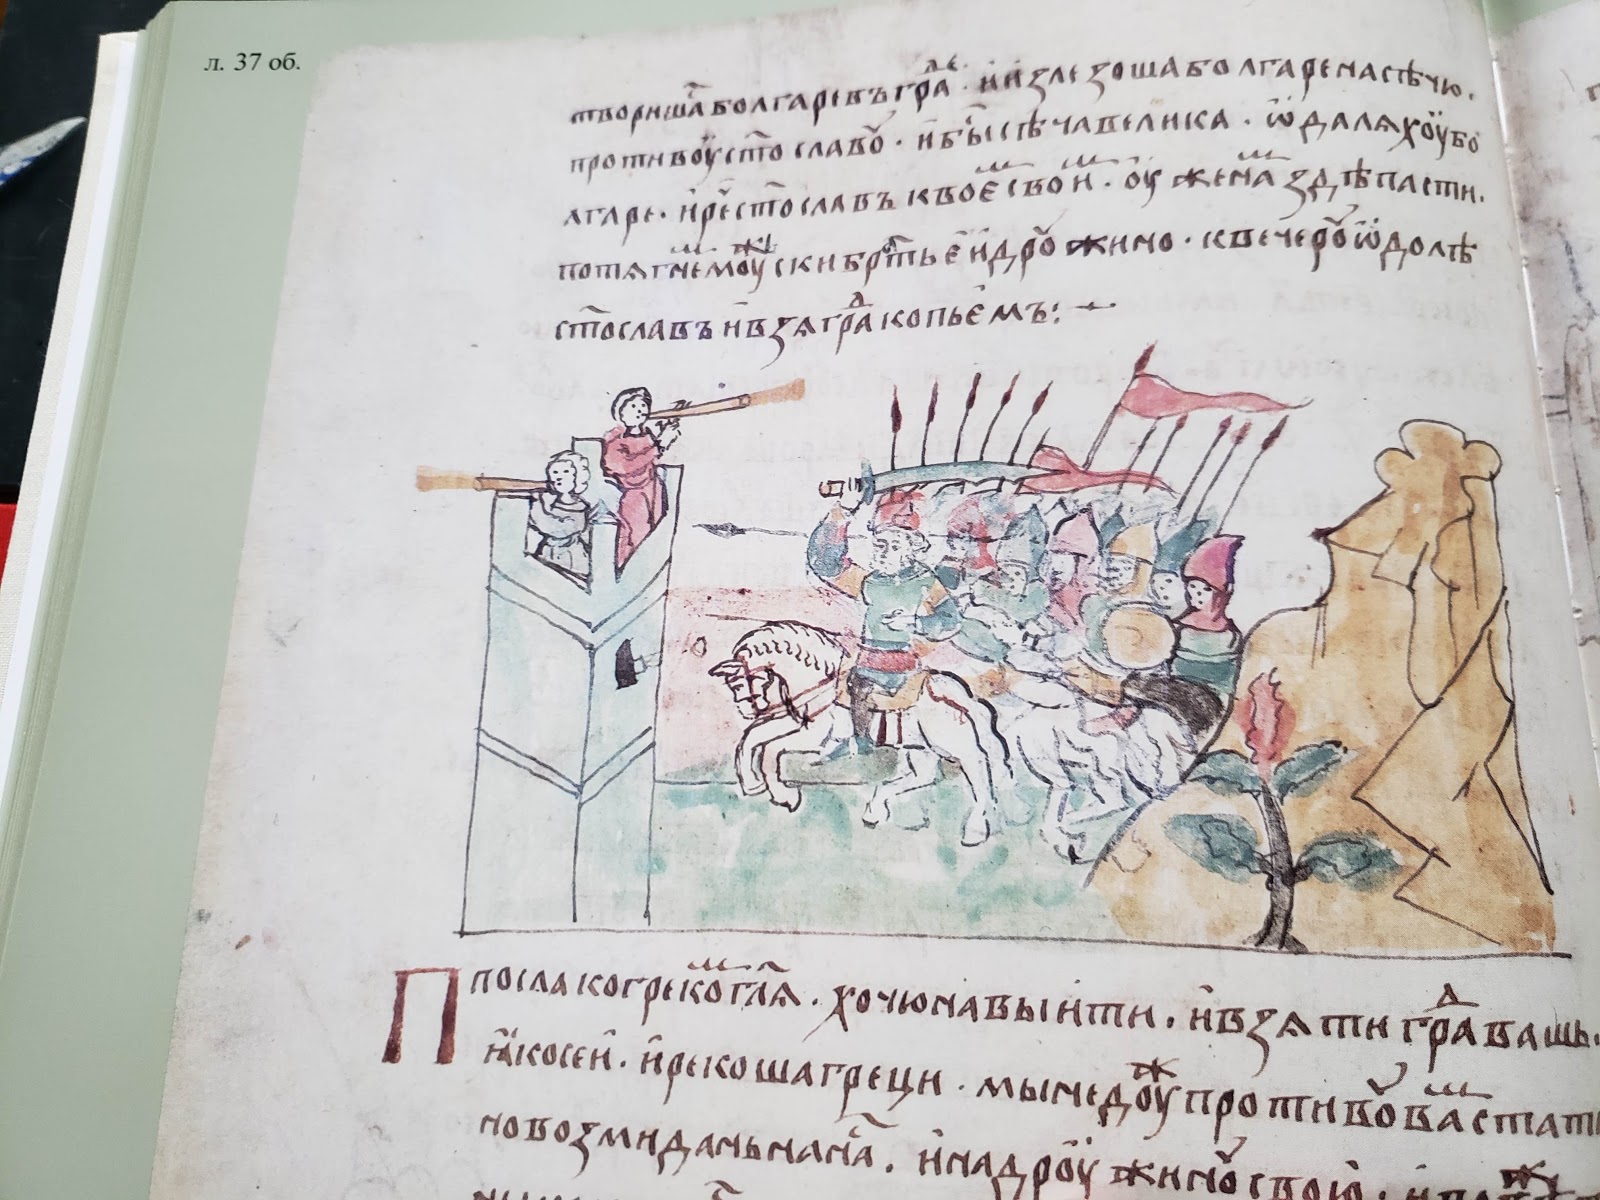 л. 37 об.
твориша болгаре въ градѣ · и излезоша болгаре на сѣчю ·
противоу ст҃ославоу · и бы сѣча велика · ѿдаляхоу бо
лгаре · и рече ст҃ославъ к воемъ своимъ · оуже намъ здѣ пасти ·
потягнемъ моужьски братье и дроужино · к вечероу ѿдолѣ
ст҃ославъ и взя град копьемъ :
П посла ко грекомъ гл҃я · хочю на вы ити · и взяти град вашь ·
яко сеи · и рекоша греци · мы недоужи противоу вамъ стати
но возми дань на насъ · и на дроужиноу свою ·